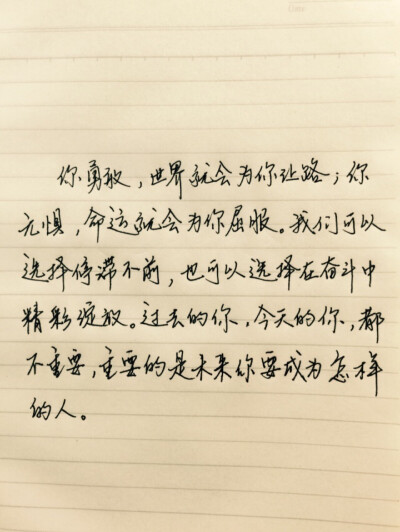 你勇敢，世界就会为你让路；你
无惧，命运就会为你屈服。我们可以
选择停滞不前，也可以选择在奋斗中
精彩绽放。过去的你，今天的你，都
不重要，重要的是未来你要成为怎样
的人。